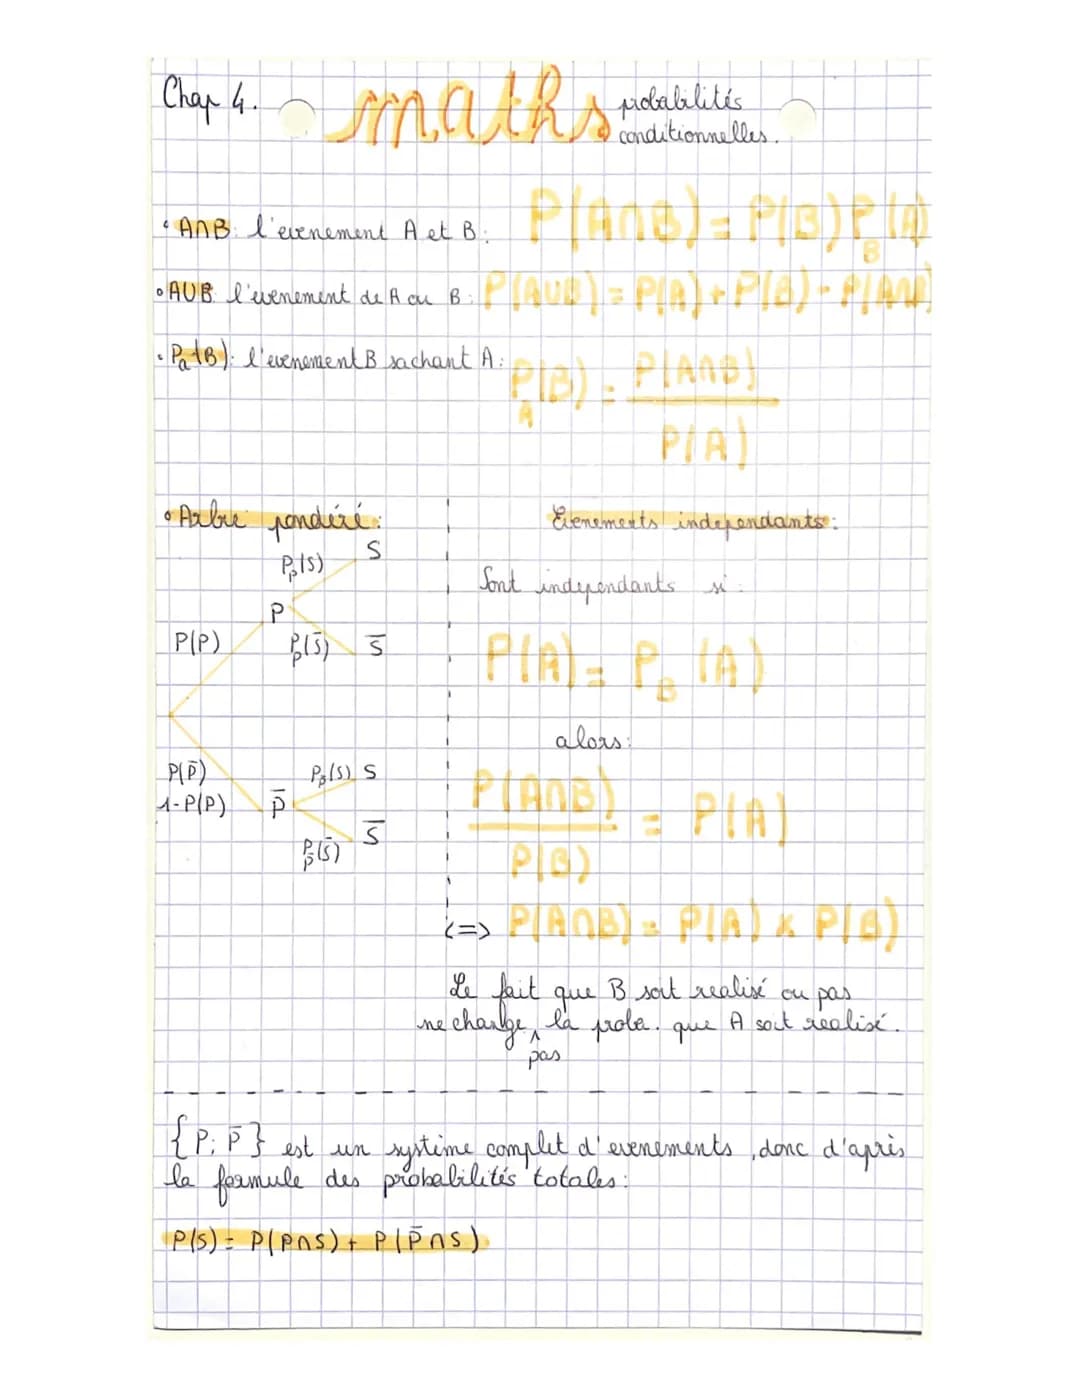 Chap 4. maths probabilités
conditionnelles.
• A∩B: l'evenement A et B: P(A∩B) = P(B) P_B(A)
• AUB: l'evenement de A ou B: P(AUB) = P(A) + P(B) - P(A∩B)
• P_a(B): l'evenement B sachant A: P_A(B) = P(A∩B)
P(A)
• Arbre pondéré:
P_p(S) S
P
P(P) P_p(S̄) S̄
P(P̄) P_p̄(S) S
1-P(P) P̄
P_p̄(S̄) S̄
Evenements independants:
Sont independants si:
P(A) = P_B (A)
alors:
P(A∩B) = P(A)
P(B)
<=> P(A∩B) = P(A) x P(B)
Le fait que B soit realisé ou pas
ne change pas la proba. que A soit realisé.
{P; P̄} est un système complet d'evenements, donc d'après
la formule des probabilités totales:
P(S) = P(P∩S) + P(P̄∩S)